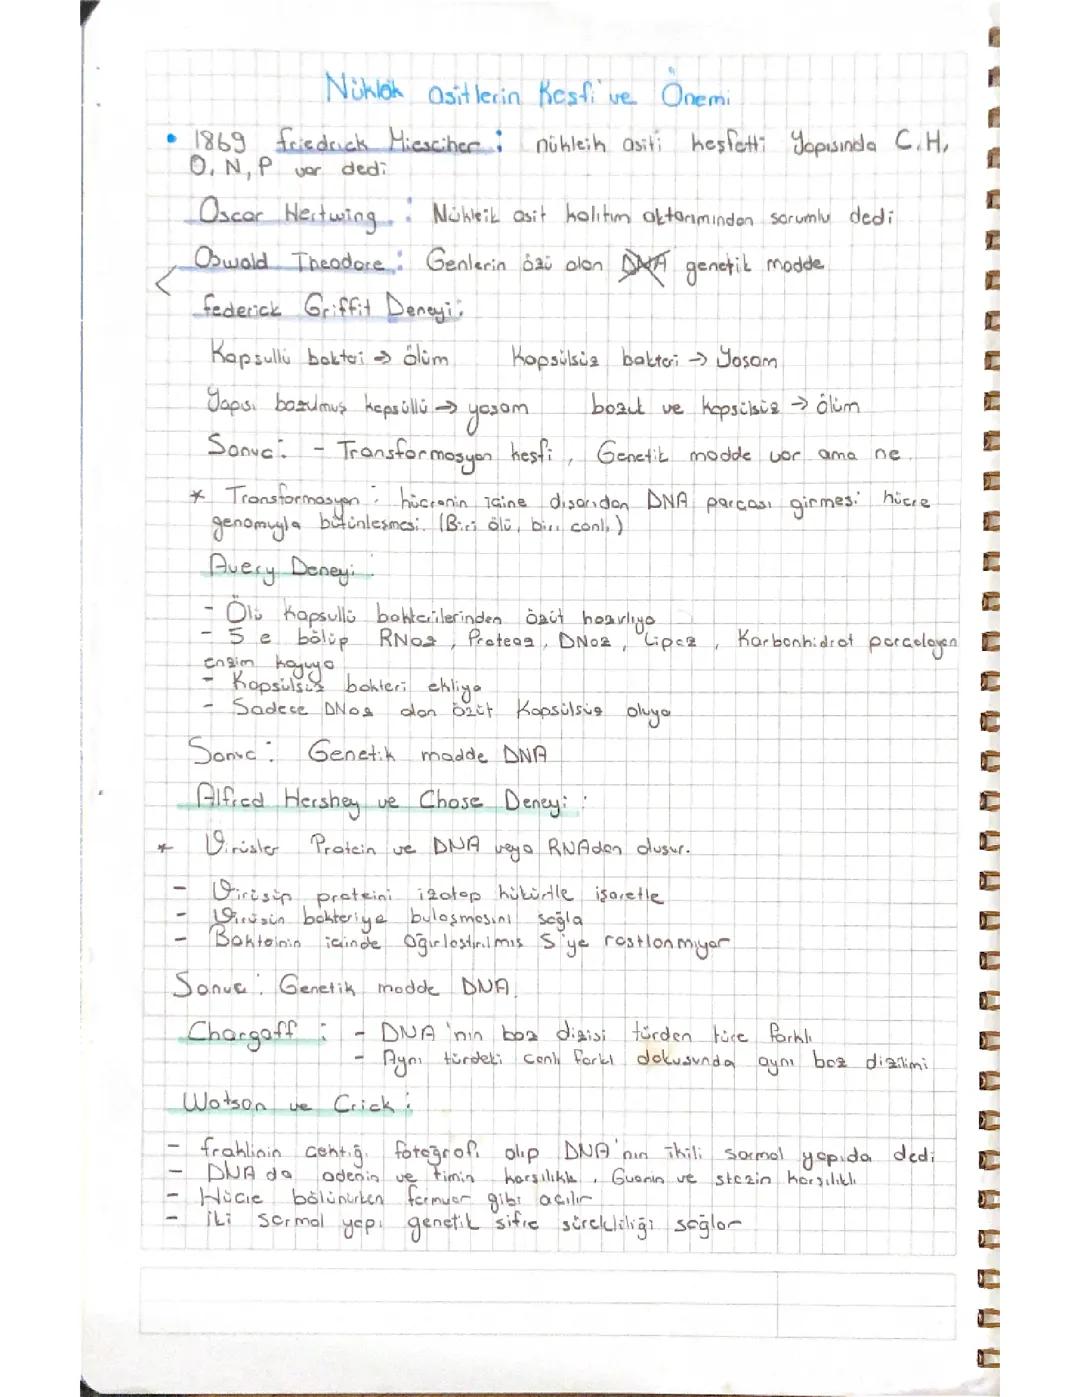 Nükleik asitlerin Kesfi ve Önemi
• 1869 friedrick Miesciher : nükleik asiti keşfetti Yapısında C, H,
O, N, P var dedi
Oscar Hertwing : Nükleik asit kalıtım aktarımından sorumlu dedi
Oswald Theodore : Genlerin özü olan DNA genetik madde
federick Griffit Deneyi :
Kapsullü bakteri → ölüm Kapsülsüz bakteri → Yaşam
Yapısı bozulmuş kapsüllü → yaşam bozuk ve kapsülsüz → ölüm
Sonuc : - Transformasyon keşfi , Genetik madde var ama ne .
* Transformasyon : hücrenin içine dışarıdan DNA parcası girmesi hücre
genomuyla bütünleşmesi. (Biri ölü, biri canlı)
Avery Deneyi :
- Ölü Kapsullü bakterilerinden özüt hazırlıyo
- 5 e bölüp RNaz , Proteaz , DNaz , Lipaz , Karbonhidrat parcalayan
enzim koyuyo
- Kapsülsüz bakteri ekliyo
- Sadece DNas olan özüt Kapsülsüz oluyo
Sonuc : Genetik madde DNA
Alfred Hershey ve Chase Deneyi :
* Virüsler Protein ve DNA veya RNAdan oluşur.
- Virüsün proteini izotop kükürtle işaretle
- Virüsün bakteriye bulaşmasını sağla
- Bakterinin içinde ağırlaştırılmış S'ye rastlanmıyor
Sonuc : Genetik madde DNA
Chargaff : - DNA'nın baz dizisi türden türe farklı
- Aynı türdeki canlı farklı dokusunda aynı baz dizilimi
Watson ve Crick :
- franklinin çektiği fotoğrafı alıp DNA'nın ikili sarmal yapıda dedi
- DNA da adenin ve timin karşılıklı , Guanin ve sitozin karşılıklı
- Hücre bölünürken fermuar gibi açılır
- İki sarmal yapı genetik şifre sürekliliği sağlar